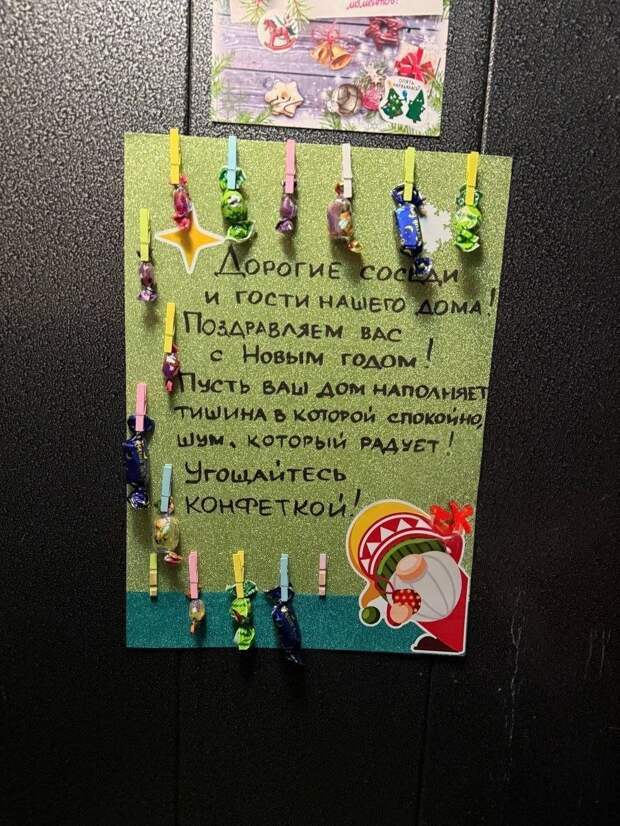 Дорогие соседи
и гости нашего дома!
Поздравляем вас
с Новым годом!
Пусть ваш дом наполняет
тишина в которой спокойно,
шум, который радует!
Угощайтесь
конфеткой!